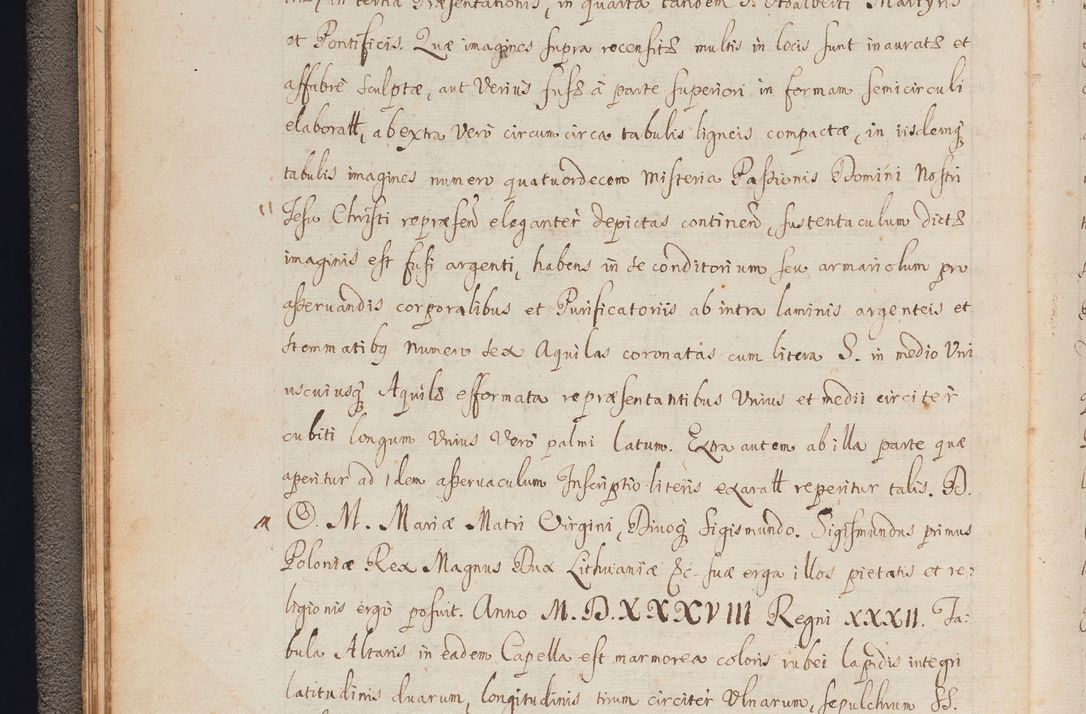 in tertia Præsentationis, in quarta tandem S. Adalberti Martyris
et Pontificis. Quæ imagines supra recensitæ multis in locis sunt inauratæ et
affabrè sculptæ, aut verius fusæ à parte superiori in formam semicirculi
elaboratæ, ab extra verò circum circa tabulis ligneis compactæ, in iisdemq́
tabulis imagines numero quatuordecem Misteria Passionis Domini Nostri
Jesu Christi repræsen eleganter depictas continen, sustentaculum dictæ
imaginis est fusi argenti, habens in se conditorium seu armariolum pro
asservandis corporalibus et Purificatoriis ab intra laminis argenteis et
stemmatibq numero sex Aquilas coronatas cum litera S. in medio Uni
uscuiusq́ Aquilæ efformata repræsentantibus Unius et medii circiter
cubiti longum Unius verò palmi latum. Extra autem ab illa parte quæ
aperitur ad idem asservaculum Inscriptio literis exarata reperitur talis. D.
O. M. Mariæ Matri Virgini, Divoq́ Sigismundo. Sigismundus primus
Poloniæ Rex Magnus Dux Lithuaniæ &c suæ erga illos pietatis et re:
ligionis ergò posuit. Anno M.D.XXXVIII Regni XXXII. Ta:
bula Altaris in eadem Capella est marmorea coloris rubei lapidis integri
latitudinis duarum, longitudinis trium circiter Ulnarum, sepulchrum SS.